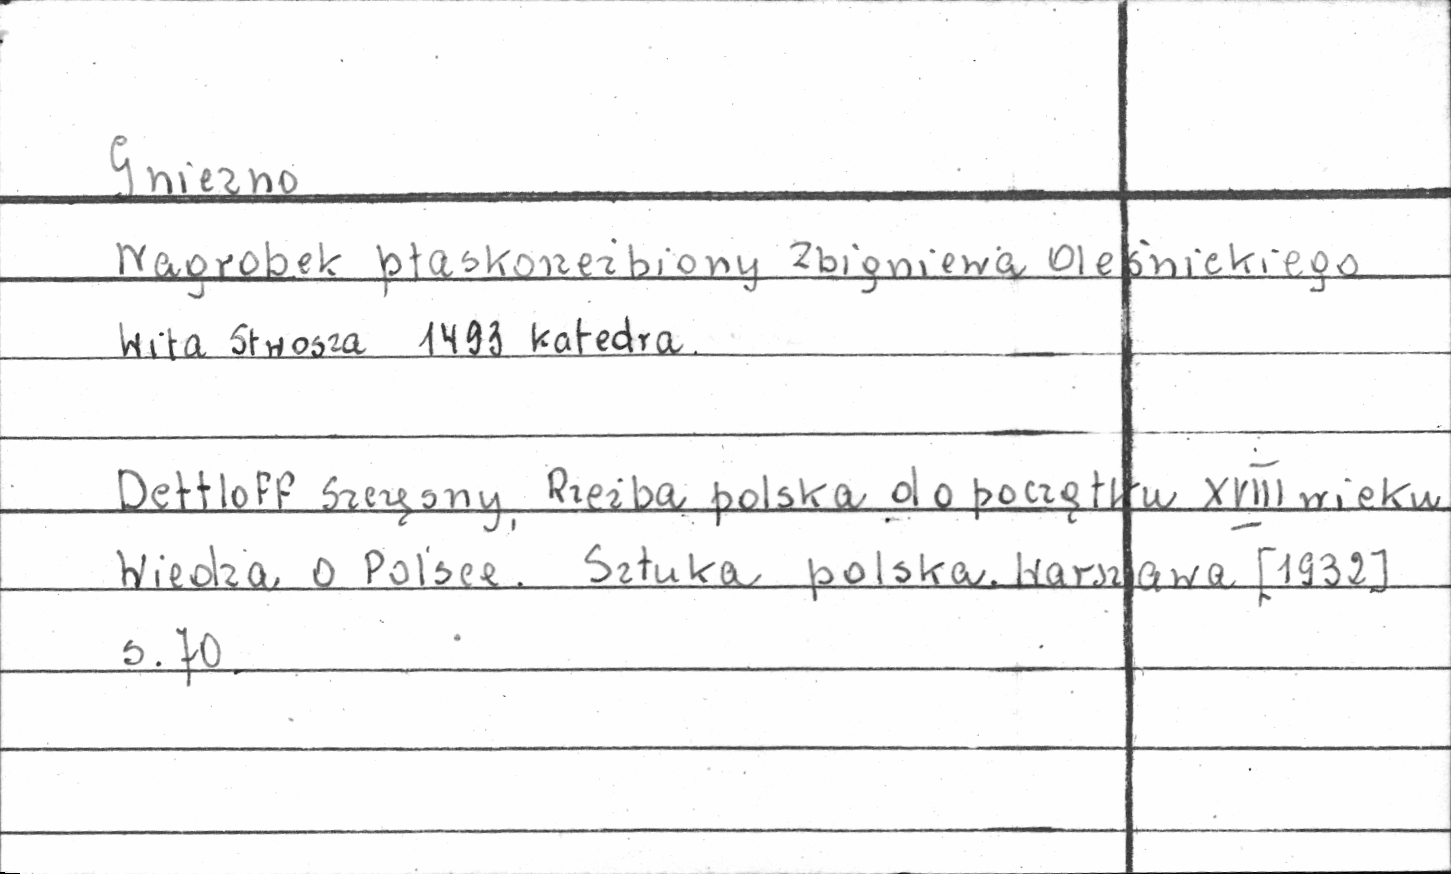 Gniezno
Nagrobek płaskorzeźbiony Zbigniewa Oleśnickiego
Wita Stwosza 1493 katedra.
Dettloff Szczęsny, Rzeźba polska do początku XVIII wieku
Wiedza o Polsce. Sztuka polska. Warszawa [1932]
s. 70